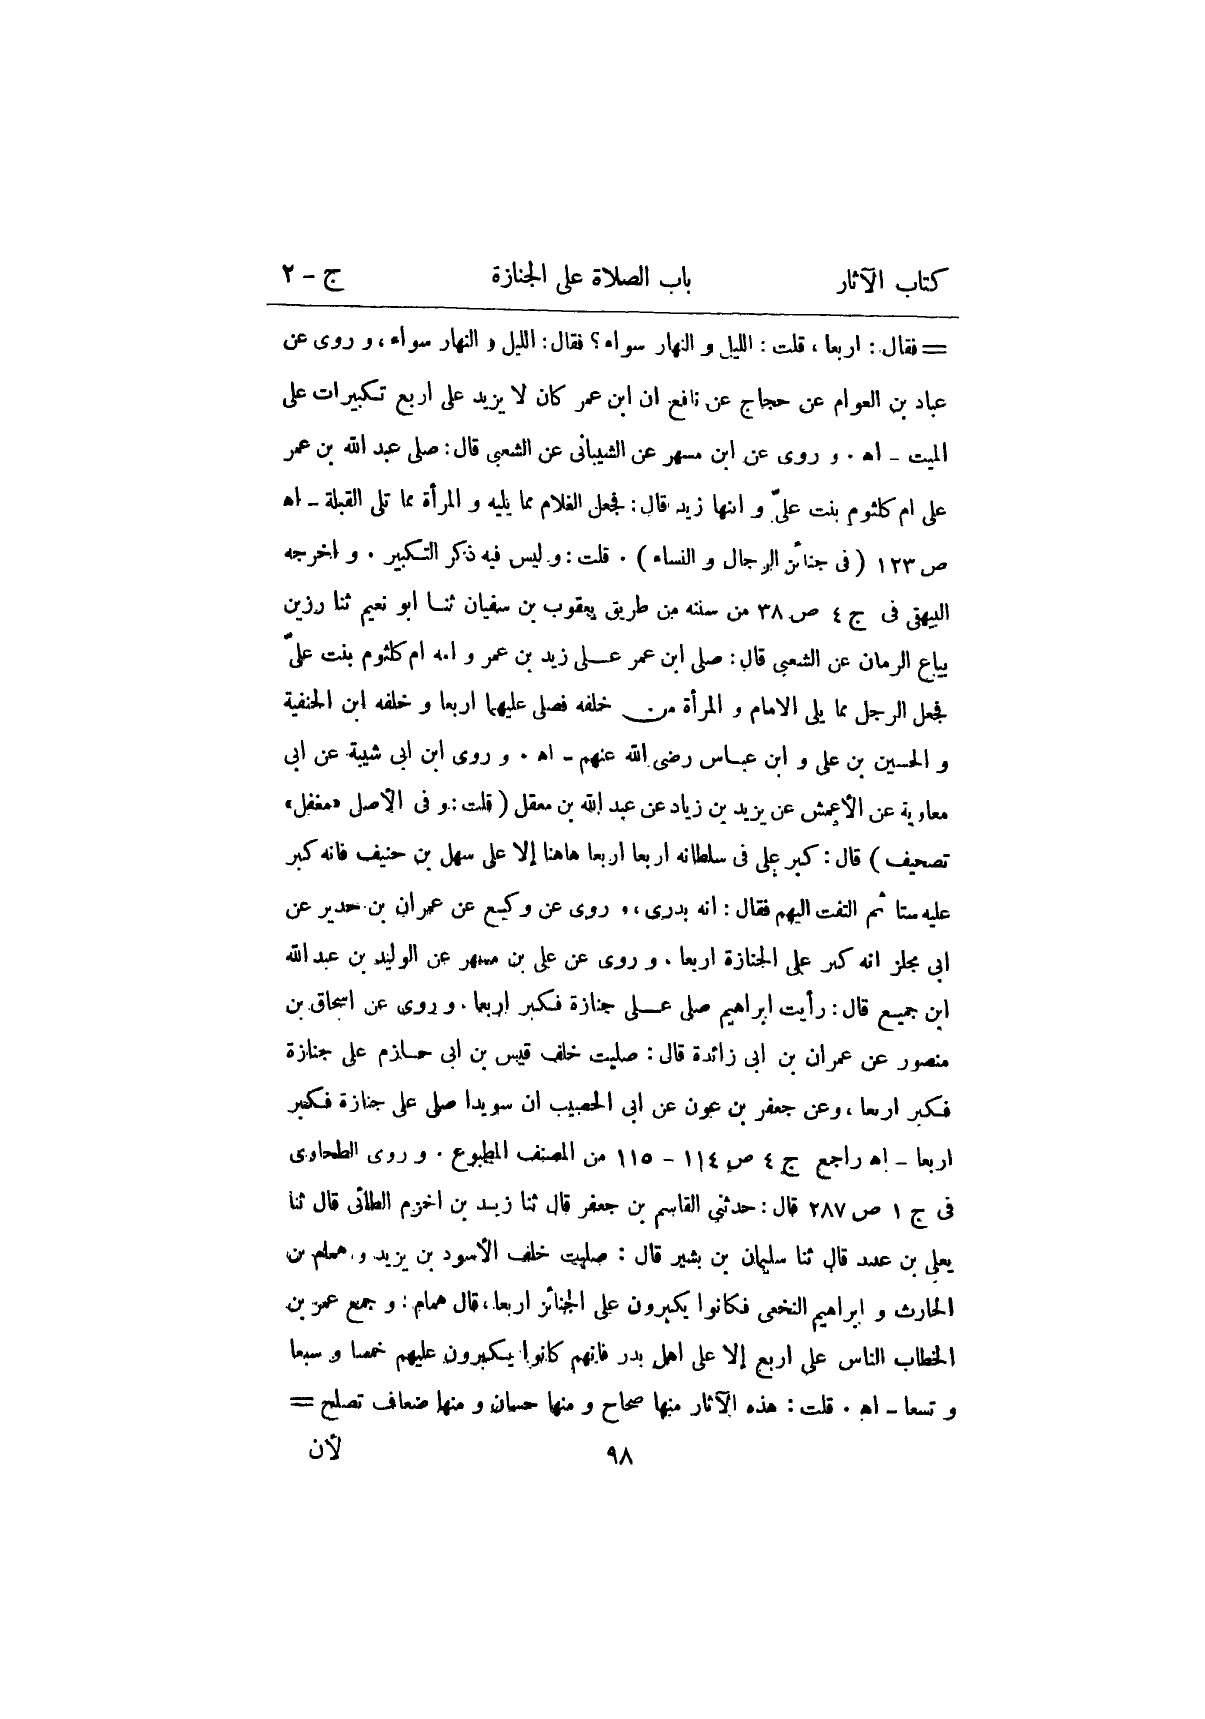 كتاب الآثار باب الصلاة على الجنازة ج - ٢
= فقال : اربعا ، قلت : الليل و النهار سواء ؟ فقال : الليل و النهار سواء ، و روى عن
عباد بن العوام عن حجاج عن نافع ان ابن عمر كان لا يزيد على اربع تكبيرات على
الميت ـ اه . و روى عن ابن مسهر عن الشيبانى عن الشعبى قال : صلى عبد الله بن عمر
على ام كلثوم بنت علىّ و ابنها زيد قال : فجعل الغلام مما يليه و المرأة مما تلى القبلة ـ اه
ص ١٢٣ ( فى جنائز الرجال و النساء ) . قلت : و ليس فيه ذكر التكبير . و اخرجه
البيهقى فى ج ٤ ص ٣٨ من سننه من طريق يعقوب بن سفيان ثنا ابو نعيم ثنا رزين
بياع الرمان عن الشعبى قال : صلى ابن عمر على زيد بن عمر و امه ام كلثوم بنت علىّ
فجعل الرجل مما يلى الامام و المرأة من خلفه فصلى عليهما اربعا و خلفه ابن الحنفية
و الحسين بن على و ابن عباس رضى الله عنهم ـ اه . و روى ابن ابى شيبة عن ابى
معاوية عن الأعمش عن يزيد بن زياد عن عبد الله بن معقل ( قلت : و فى الأصل «مغفل»
تصحيف ) قال : كبر على فى سلطانه اربعا اربعا هاهنا إلا على سهل بن حنيف فانه كبر
عليه ستا ثم التفت اليهم فقال : انه بدرى ، و روى عن وكيع عن عمران بن حدير عن
ابى مجلز انه كبر على الجنازة اربعا . و روى عن على بن مسهر عن الوليد بن عبد الله
ابن جميع قال : رأيت ابراهيم صلى على جنازة فكبر اربعا . و روى عن اسحاق بن
منصور عن عمران بن ابى زائدة قال : صليت خلف قيس بن ابى حازم على جنازة
فكبر اربعا ، وعن جعفر بن عون عن ابى الخصيب ان سويدا صلى على جنازة فكبر
اربعا ـ اه راجع ج ٤ ص ١١٤ - ١١٥ من المصنف المطبوع . و روى الطحاوى
فى ج ١ ص ٢٨٧ قال : حدثنى القاسم بن جعفر قال ثنا زيد بن اخزم الطائى قال ثنا
يعلى بن عبيد قال ثنا سليمان بن بشير قال : صليت خلف الأسود بن يزيد و همام بن
الحارث و ابراهيم النخعى فكانوا يكبرون على الجنائز اربعا ، قال همام : و جمع عمر بن
الخطاب الناس على اربع إلا على اهل بدر فانهم كانوا يكبرون عليهم خمسا و سبعا
و تسعا ـ اه . قلت : هذه الآثار منها صحاح و منها حسان و منها ضعاف تصلح =
٩٨ لأن